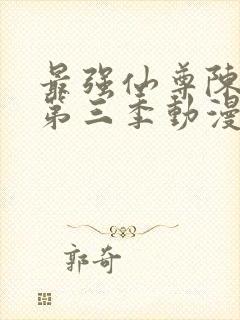 最强仙尊陳
第三季動漫
郭奇